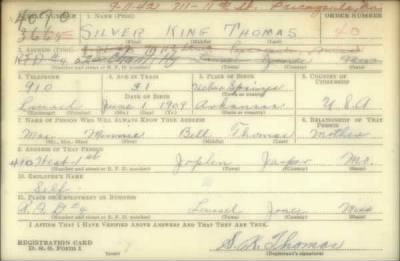 9-11-42 711-11th St. Pascagoula, Miss
SERIAL NUMBER 1. NAME (Print) ORDER NUMBER
4070
366 SILVER KING THOMAS 40
(First) (Middle) (Last)
2. ADDRESS (Print)
(Number and street or R. F. D. number) (Town) (County) (State)
3. TELEPHONE 4. AGE IN YEARS 5. PLACE OF BIRTH 6. COUNTRY OF CITIZENSHIP
910 31 Heber Springs
DATE OF BIRTH
Laurel June 1 1909 Arkansas U.S.A
(Exchange) (Number) (Mo.) (Day) (Yr.) (State or country)
7. NAME OF PERSON WHO WILL ALWAYS KNOW YOUR ADDRESS 8. RELATIONSHIP OF THAT PERSON
Mrs. Minnie Bell Thomas Mother
(Mr., Mrs., Miss) (First) (Middle) (Last)
9. ADDRESS OF THAT PERSON
410 West 1st Joplin Jasper Mo.
(Number and street or R. F. D. number) (Town) (County) (State)
10. EMPLOYER'S NAME
Self
11. PLACE OF EMPLOYMENT OR BUSINESS
R.F.D #4 Laurel Jones Miss
(Number and street or R. F. D. number) (Town) (County) (State)
I AFFIRM THAT I HAVE VERIFIED ABOVE ANSWERS AND THAT THEY ARE TRUE.
REGISTRATION CARD
D. S. S. Form 1 S. K. Thomas
(Registrant's signature)